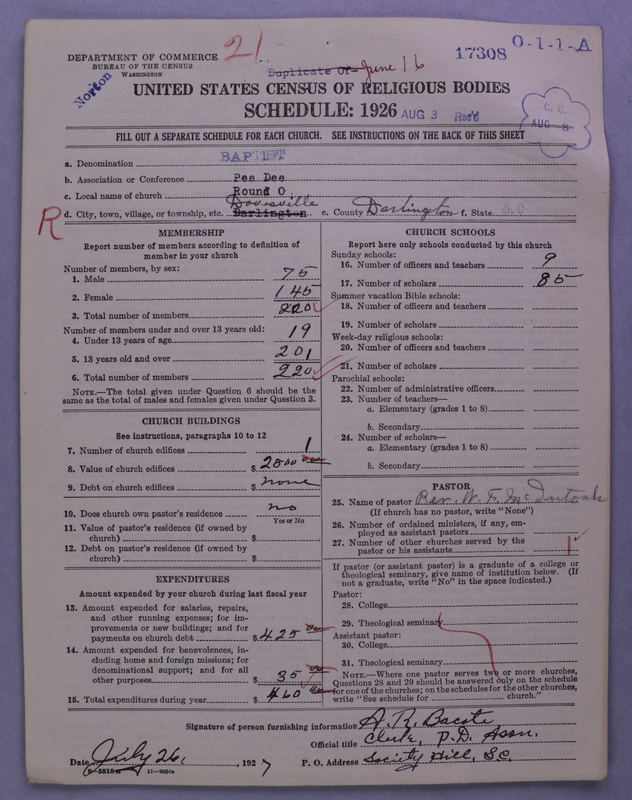 DEPARTMENT OF COMMERCE
BUREAU OF THE CENSUS
WASHINGTON
21
Duplicate Of June 16
17308
0-1-1-A
Norton
UNITED STATES CENSUS OF RELIGIOUS BODIES
SCHEDULE: 1926
AUG 3 Rec'd
C. C.
AUG 8
FILL OUT A SEPARATE SCHEDULE FOR EACH CHURCH. SEE INSTRUCTIONS ON THE BACK OF THIS SHEET
a. Denomination BAPTIST
b. Association or Conference Pee Dee
c. Local name of church Round O
R
d. City, town, village, or township, etc. Darlington Dovesville e. County Darlington f. State S.C
MEMBERSHIP
Report number of members according to definition of
member in your church
Number of members, by sex:
1. Male 75
2. Female 145
3. Total number of members 220
Number of members under and over 13 years old:
4. Under 13 years of age 19
5. 13 years old and over 201
6. Total number of members 220
NOTE.—The total given under Question 6 should be the
same as the total of males and females given under Question 3.
CHURCH BUILDINGS
See instructions, paragraphs 10 to 12
7. Number of church edifices 1
8. Value of church edifices $ 2000 00
9. Debt on church edifices $ none
10. Does church own pastor's residence no
Yes or No
11. Value of pastor's residence (if owned by
church) $
12. Debt on pastor's residence (if owned by
church) $
EXPENDITURES
Amount expended by your church during last fiscal year
13. Amount expended for salaries, repairs,
and other running expenses; for im-
provements or new buildings; and for
payments on church debt $ 425 00
14. Amount expended for benevolences, in-
cluding home and foreign missions; for
denominational support; and for all
other purposes $ 35 00
15. Total expenditures during year $ 460 00
CHURCH SCHOOLS
Report here only schools conducted by this church
Sunday schools:
16. Number of officers and teachers 9
17. Number of scholars 85
Summer vacation Bible schools:
18. Number of officers and teachers
19. Number of scholars
Week-day religious schools:
20. Number of officers and teachers
21. Number of scholars
Parochial schools:
22. Number of administrative officers
23. Number of teachers—
a. Elementary (grades 1 to 8)
b. Secondary
24. Number of scholars—
a. Elementary (grades 1 to 8)
b. Secondary
PASTOR
25. Name of pastor Rev. W. F. McIntosh
(If church has no pastor, write "None")
26. Number of ordained ministers, if any, em-
ployed as assistant pastors
27. Number of other churches served by the
pastor or his assistants 1
If pastor (or assistant pastor) is a graduate of a college or
theological seminary, give name of institution below. (If
not a graduate, write "No" in the space indicated.)
Pastor:
28. College
29. Theological seminary
Assistant pastor:
30. College
31. Theological seminary
NOTE.—Where one pastor serves two or more churches,
Questions 28 and 29 should be answered only on the schedule
for one of the churches; on the schedules for the other churches,
write "See schedule for church."
Signature of person furnishing information A. R. Bacote
Official title Clerk, P.D. Assn.
Date July 26, 1927 P. O. Address Society Hill, S.C.
8-5516a 11-9051a